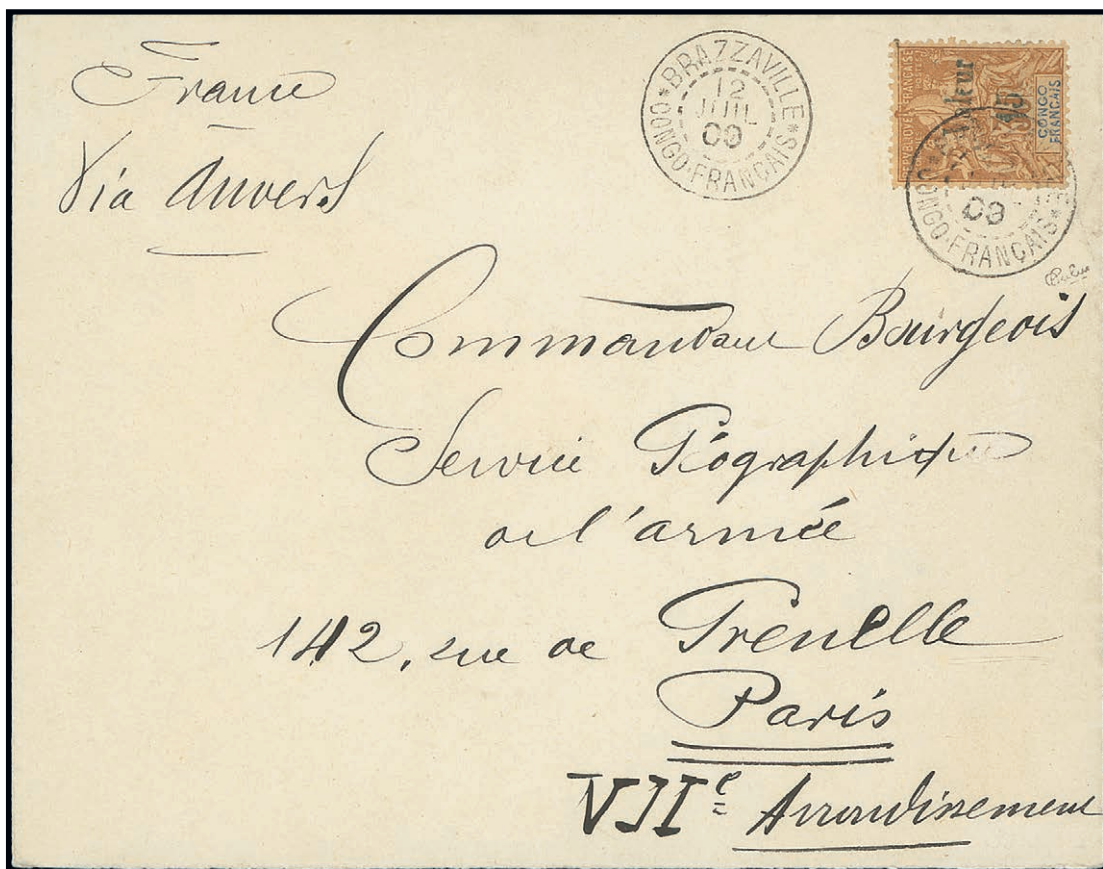 France
Via Anvers
BRAZZAVILLE
12
JUIL
00
CONGO-FRANÇAIS
Valeur
15
CONGO
FRANÇAIS
00
CONGO-FRANÇAIS
Commandant Bourgeois
Service Géographique
de l'armée
142, rue de Grenelle
Paris
VIIe Arrondissement